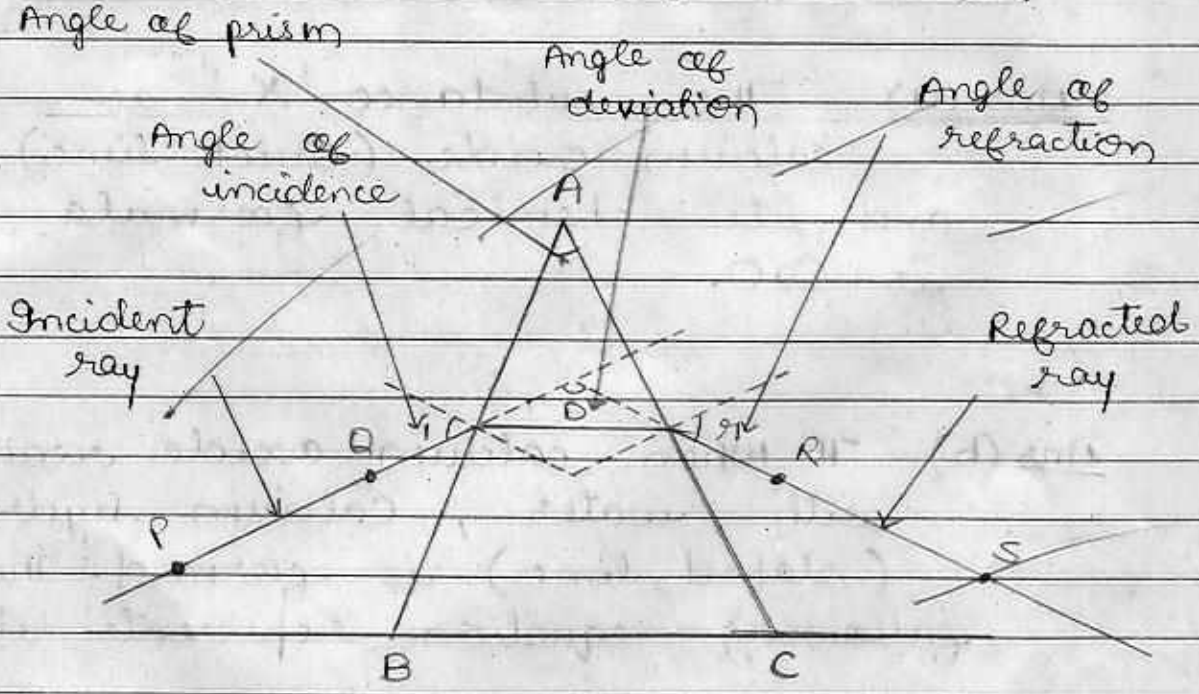 Angle of prism
Angle of
deviation
Angle of
refraction
Angle of
incidence
A
Incident
ray
Refracted
ray
D
i
r
Q
R
P
S
B
C